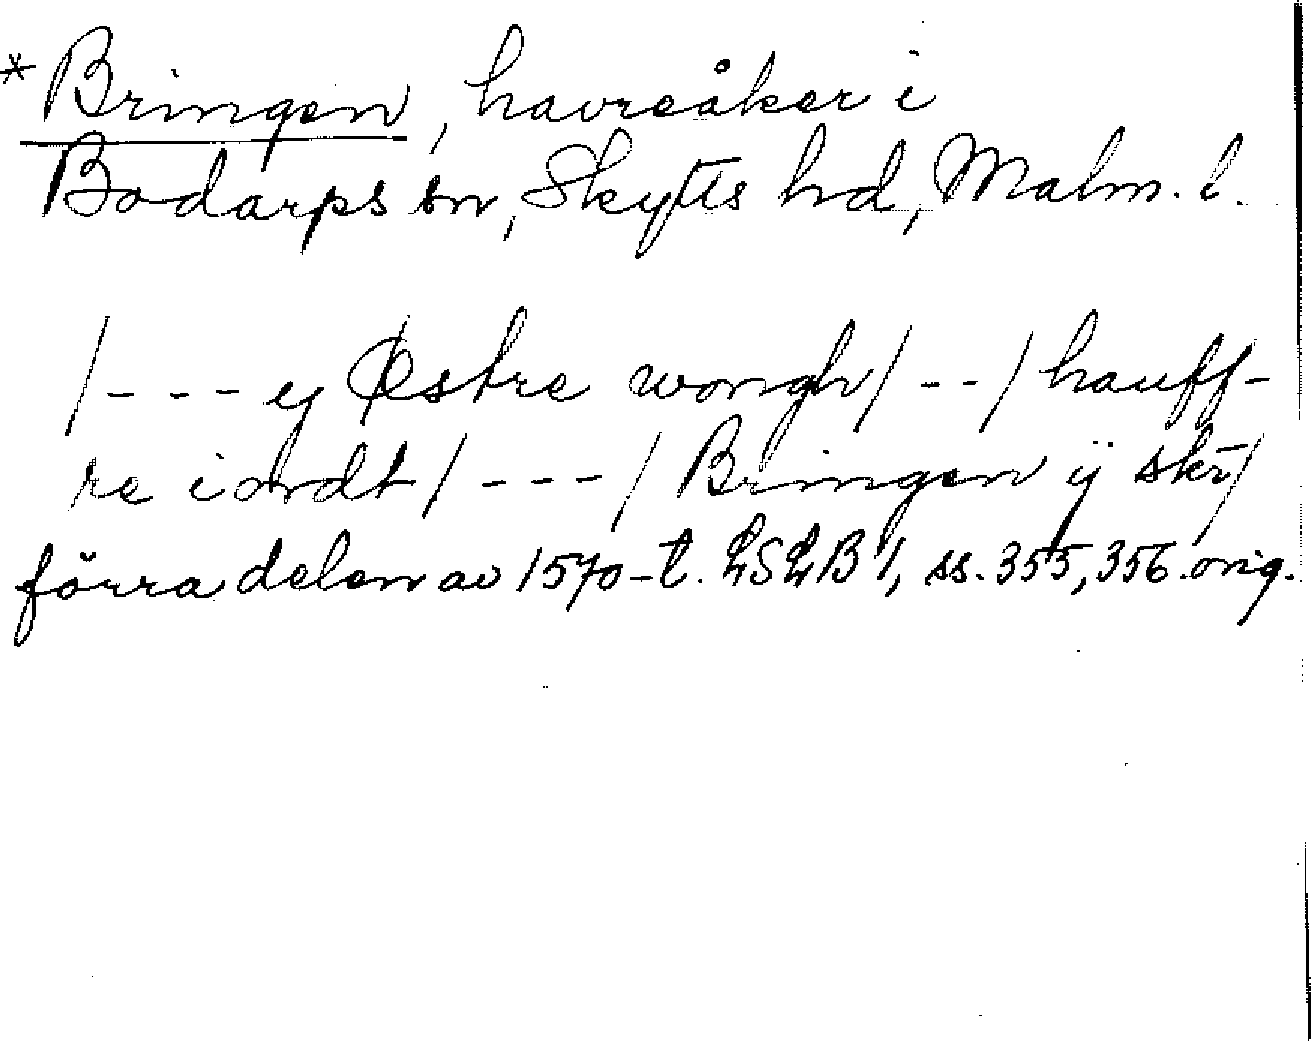 *Bringen, havreåker i
Bodarps sn, Skytts hd, Malm. l.
/--- ij Østre wongh/--/hauff-
re iordt/---/Bringen ÿ skr/
förra delen av 1570-t. LSLB 1, ss. 355, 356. orig.